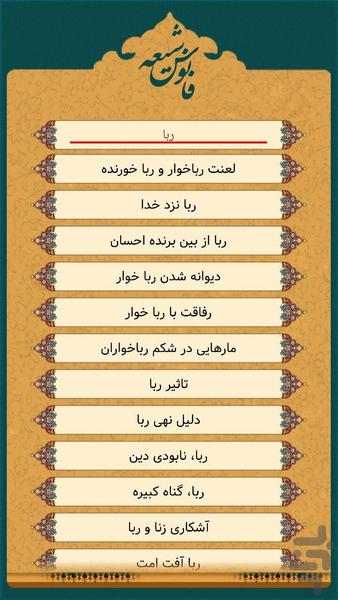 فانوس شیعه
ربا
لعنت رباخوار و ربا خورنده
ربا نزد خدا
ربا از بین برنده احسان
دیوانه شدن ربا خوار
رفاقت با ربا خوار
مارهایی در شکم رباخواران
تاثیر ربا
دلیل نهی ربا
ربا، نابودی دین
ربا، گناه کبیره
آشکاری زنا و ربا
ربا آفت امت